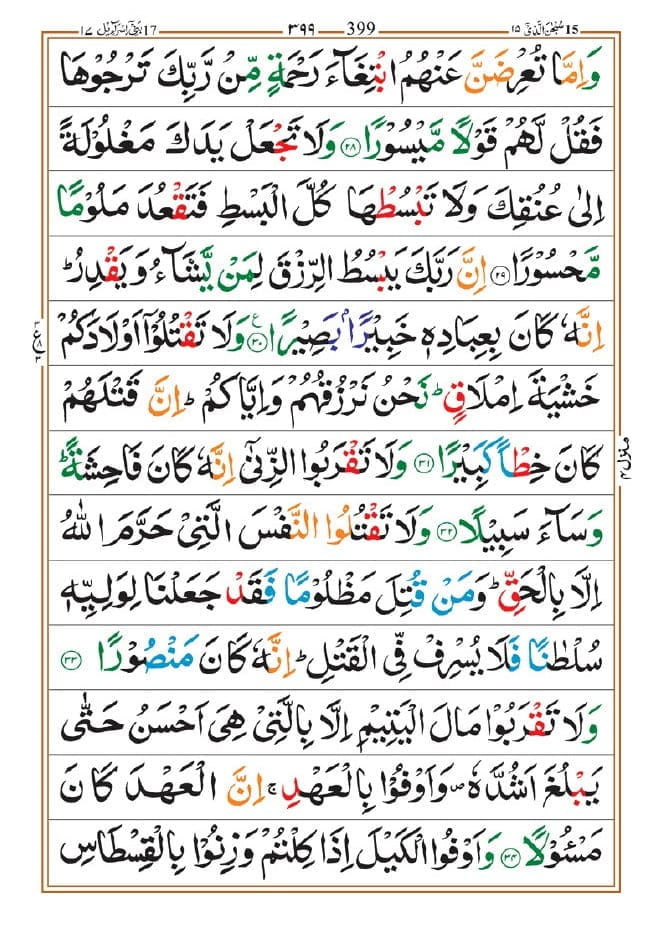 15 سُبْحٰنَ الَّذِیْۤ ۱۵ 399 ۳۹۹ 17 بَنِیْۤ اِسْرَآءِیْل ۱۷
وَاِمَّا تُعْرِضَنَّ عَنْهُمُ ابْتِغَآءَ رَحْمَةٍ مِّنْ رَّبِّكَ تَرْجُوْهَا
فَقُلْ لَّهُمْ قَوْلًا مَّیْسُوْرًا ۝۲۸ وَلَا تَجْعَلْ یَدَكَ مَغْلُوْلَةً
اِلٰی عُنُقِكَ وَلَا تَبْسُطْهَا كُلَّ الْبَسْطِ فَتَقْعُدَ مَلُوْمًا
مَّحْسُوْرًا ۝۲۹ اِنَّ رَبَّكَ یَبْسُطُ الرِّزْقَ لِمَنْ یَّشَآءُ وَیَقْدِرُ ؕ
اِنَّهٗ كَانَ بِعِبَادِهٖ خَبِیْرًۢا بَصِیْرًا ۝۳۰ وَلَا تَقْتُلُوْۤا اَوْلَادَكُمْ
ع
خَشْیَةَ اِمْلَاقٍ ؕ نَحْنُ نَرْزُقُهُمْ وَاِیَّاكُمْ ؕ اِنَّ قَتْلَهُمْ
كَانَ خِطْاً كَبِیْرًا ۝۳۱ وَلَا تَقْرَبُوا الزِّنٰۤی اِنَّهٗ كَانَ فَاحِشَةً ؕ
منزل ۴
وَسَآءَ سَبِیْلًا ۝۳۲ وَلَا تَقْتُلُوا النَّفْسَ الَّتِیْ حَرَّمَ اللّٰهُ
اِلَّا بِالْحَقِّ ؕ وَمَنْ قُتِلَ مَظْلُوْمًا فَقَدْ جَعَلْنَا لِوَلِیِّهٖ
سُلْطٰنًا فَلَا یُسْرِفْ فِّی الْقَتْلِ ؕ اِنَّهٗ كَانَ مَنْصُوْرًا ۝۳۳
وَلَا تَقْرَبُوْا مَالَ الْیَتِیْمِ اِلَّا بِالَّتِیْ هِیَ اَحْسَنُ حَتّٰی
یَبْلُغَ اَشُدَّهٗ ۪ وَاَوْفُوْا بِالْعَهْدِ ۚ اِنَّ الْعَهْدَ كَانَ
مَسْـُٔوْلًا ۝۳۴ وَاَوْفُوا الْكَیْلَ اِذَا كِلْتُمْ وَزِنُوْا بِالْقِسْطَاسِ